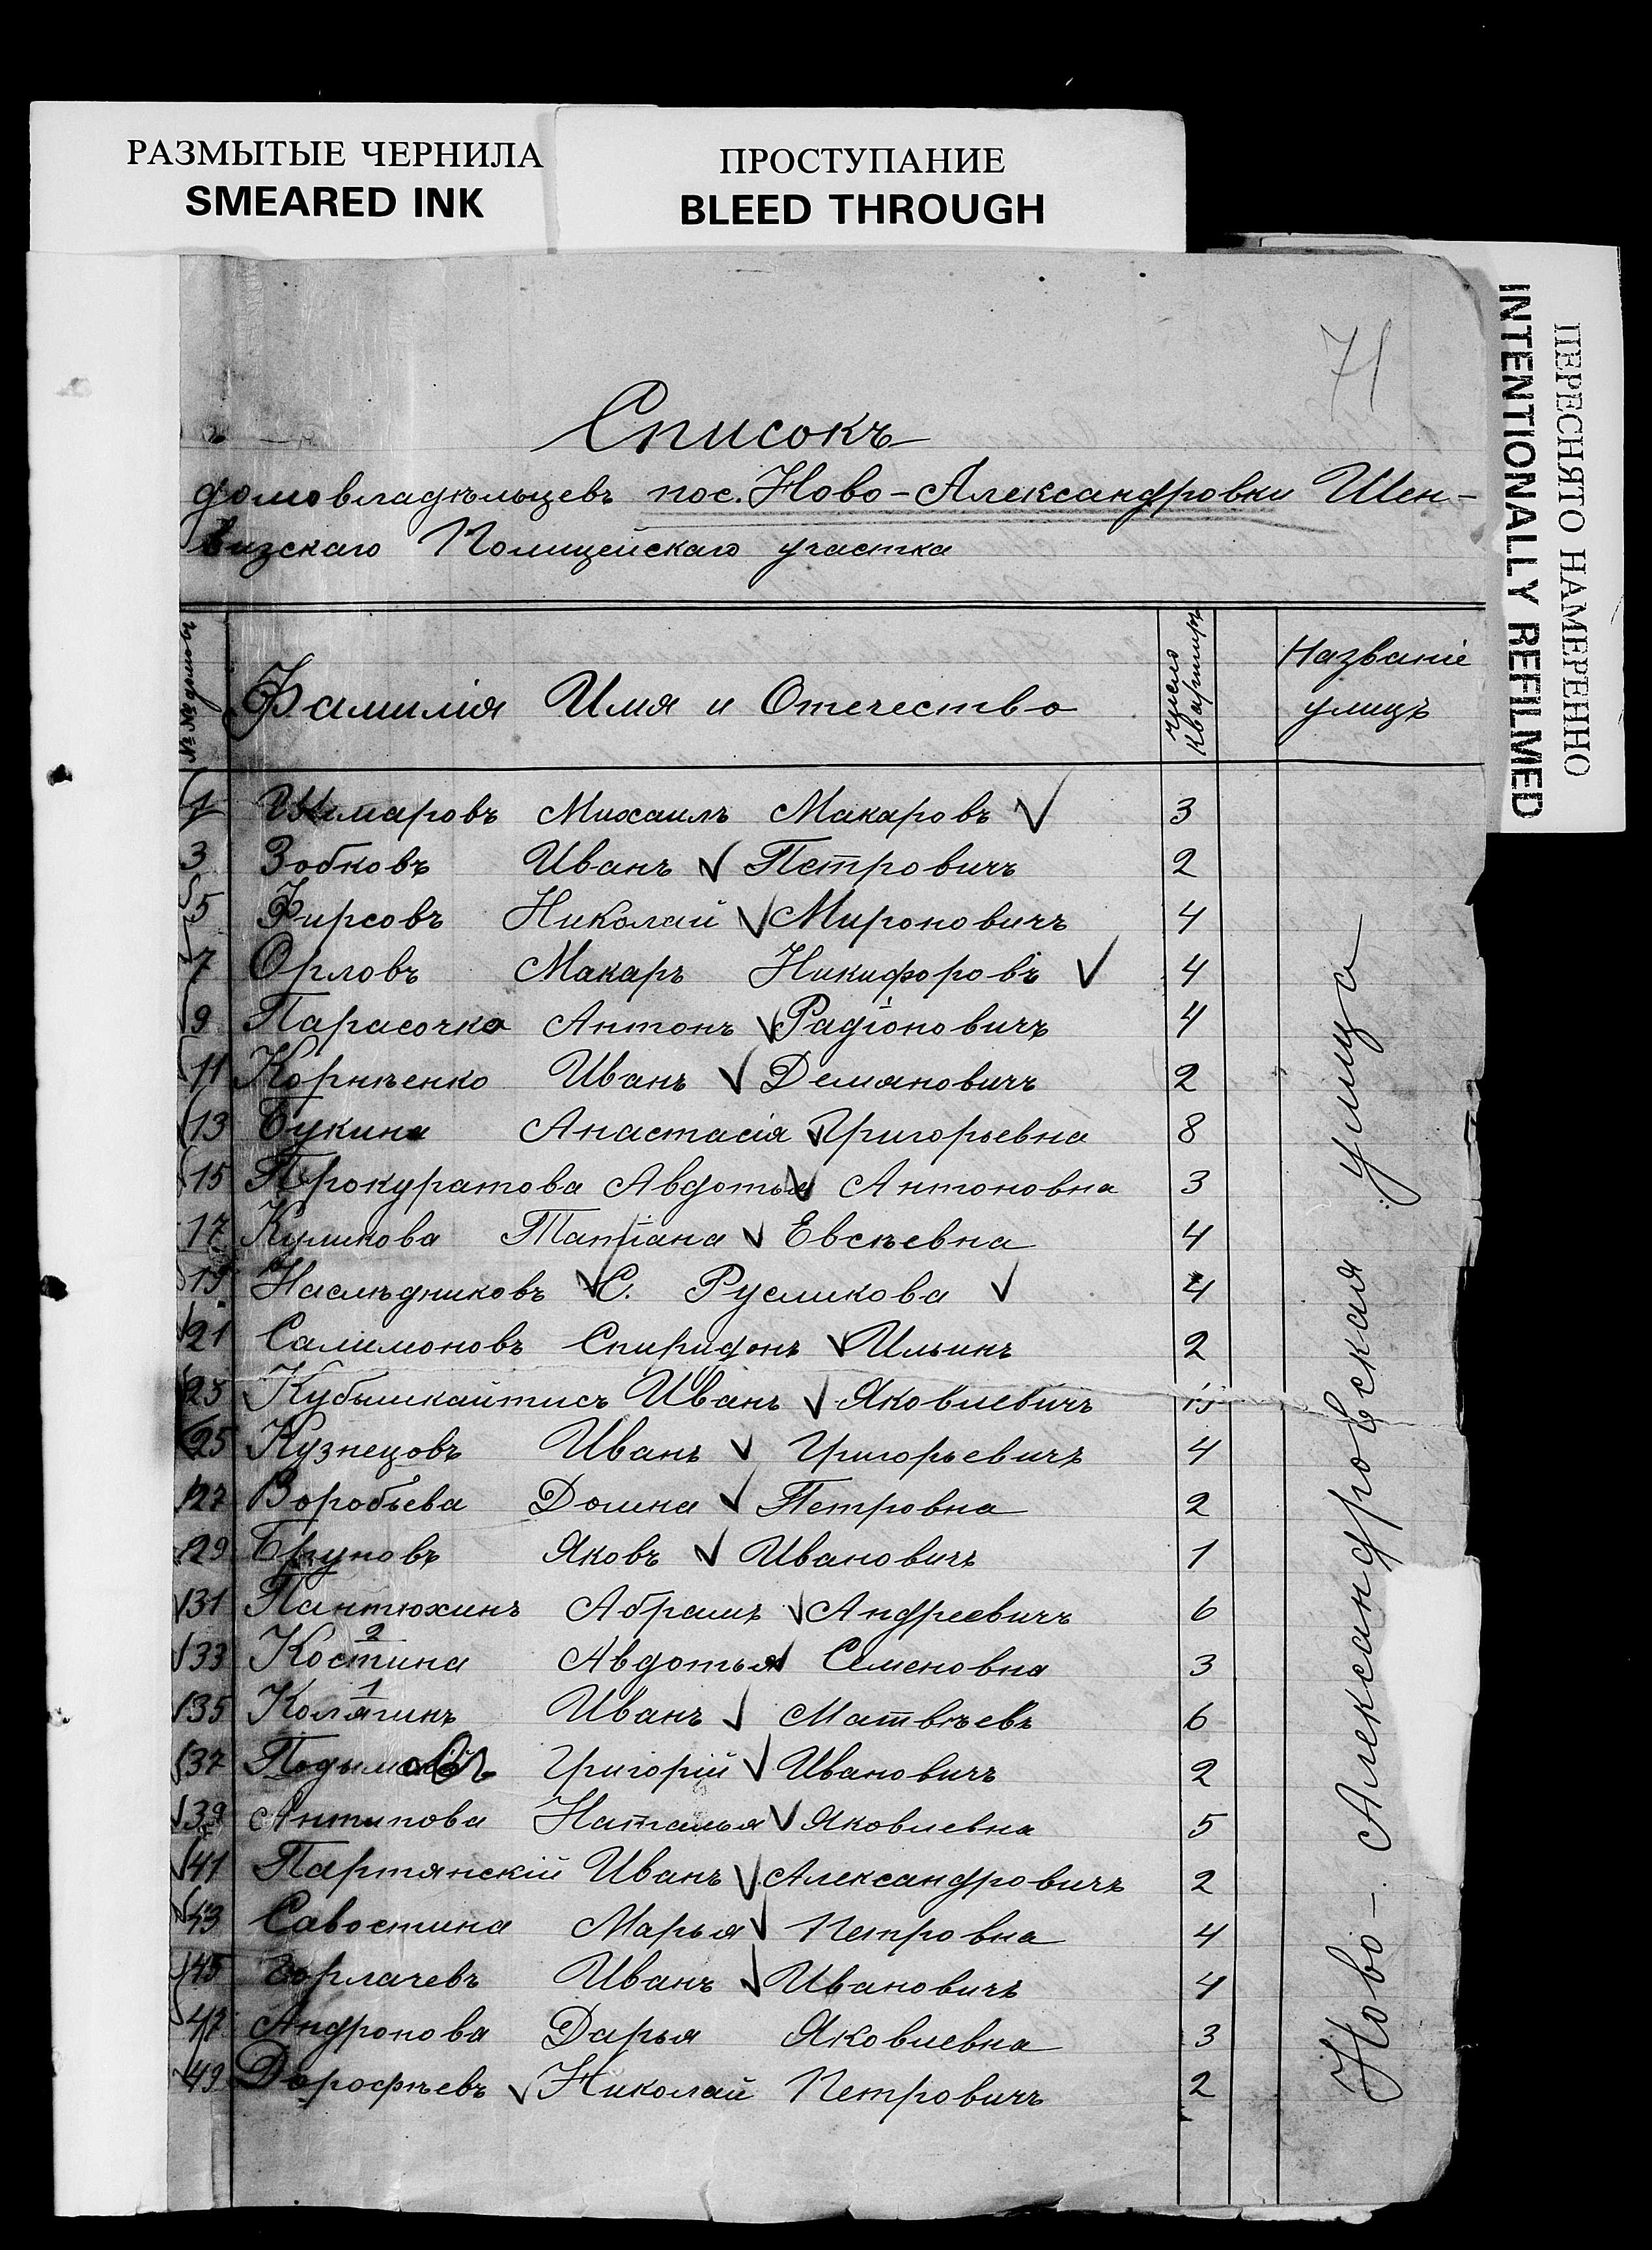 РАЗМЫТЫЕ ЧЕРНИЛА
SMEARED INK
ПРОСТУПАНИЕ
BLEED THROUGH
ПЕРЕСНЯТО НАМЕРЕННО
INTENTIONALLY REFILMED
71
Списокъ
домовладѣльцевъ пос. Ново-Александровки Шен-
визскаго Полицейскаго участка
№№ домовъ Фамилія Имя и Отечество число квартиръ Названіе улицъ
1 Михаилъ Макаровъ 3
3 Зобковъ Иванъ Петровичъ 2
5 Фирсовъ Николай Мироновичъ 4
7 Орловъ Макаръ Никифоровъ 4
9 Парасочка Антонъ Радіоновичъ 4
11 Корнѣенко Иванъ Демяновичъ 2
13 Букина Анастасія Григорьевна 8
15 Прокуратова Авдотья Антоновна 3
17 Куликова Татіана Евсѣевна 4
19 Наслѣдниковъ С. Русликова 4
21 Салимоновъ Спиридонъ Ильинъ 2
23 Кубышкайтисъ Иванъ Яковлевичъ
25 Кузнецовъ Иванъ Григорьевичъ 4
27 Воробьева Домна Петровна 2
29 Бруновъ Яковъ Ивановичъ 1
31 Пантюхинъ Абрамъ Андреевичъ 6
2
33 Костина Авдотья Семеновна 3
1
35 Колягинъ Иванъ Матвѣевъ 6
37 Григорій Ивановичъ 2
39 Антипова Наталья Яковлевна 5
41 Партянскій Иванъ Александровичъ 2
43 Савостина Марья Петровна 4
45 Горлачевъ Иванъ Ивановичъ 4
47 Андронова Дарья Яковлевна 3
49 Дорофѣевъ Николай Петровичъ 2
Ново-Александровская улица